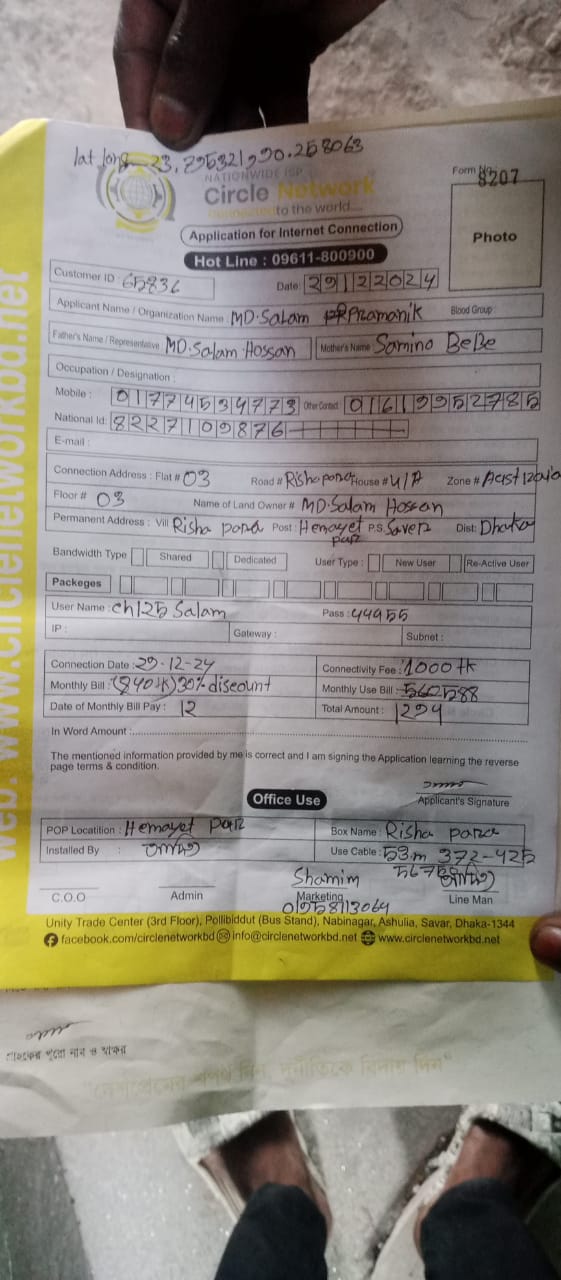 lat long 23.795321,90.258063
NATIONWIDE ISP
Circle Network
Connected to the world....
Form No. 8207
Photo
Application for Internet Connection
Hot Line : 09611-800900
Customer ID : 65836 Date: 29122024
Applicant Name / Organization Name : MD. Salam Pramanik Blood Group :
Father's Name / Representative MD. Salam Hossan Mother's Name Samino BeBe
Occupation / Designation :
Mobile : 01774534773 Other Contact 01619952785
National Id: 8227109876
E-mail :
Connection Address : Flat # 03 Road # Risha para House # U/A Zone #
Floor # 03 Name of Land Owner # MD. Salam Hossan
Permanent Address : Vill Risha para Post : Hemayet pur P.S. Saver Dist: Dhaka
Bandwidth Type Shared Dedicated User Type : New User Re-Active User
Packeges
User Name : ch125 Salam Pass : 44955
IP : Gateway : Subnet :
Connection Date : 29-12-24 Connectivity Fee : 1000 tk
Monthly Bill : (840 tk) 30% discount Monthly Use Bill : 588
Date of Monthly Bill Pay : 12 Total Amount : 1294
In Word Amount :
The mentioned information provided by me is correct and I am signing the Application learning the reverse
page terms & condition.
Applicant's Signature
Office Use
POP Locatition : Hemayet Pur Box Name : Risha para
Installed By : Use Cable : 53m 372-425
Shamim
C.O.O Admin Marketing Line Man
01958113064
Unity Trade Center (3rd Floor), Pollibiddut (Bus Stand), Nabinagar, Ashulia, Savar, Dhaka-1344
facebook.com/circlenetworkbd info@circlenetworkbd.net www.circlenetworkbd.net
web: www.circlenetworkbd.net
গ্রাহকের পুরো নাম ও স্বাক্ষর
"দেশপ্রেমের শপথ নিন, দুর্নীতিকে বিদায় দিন"